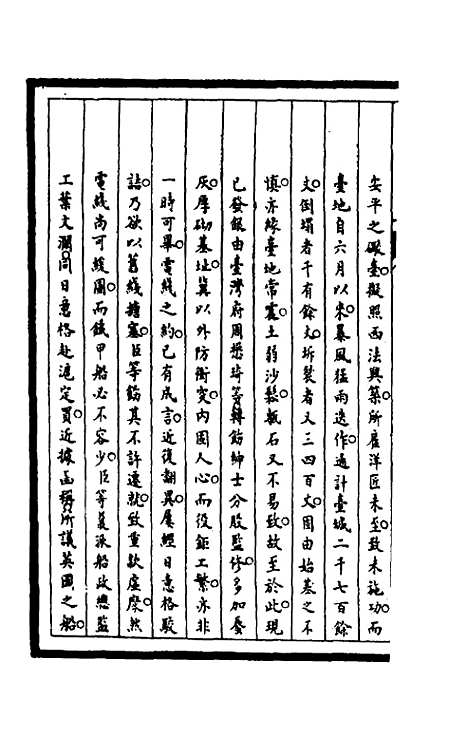 安平之礮臺擬照西法興築所雇洋匠未至致未施功而
臺地自六月以來暴風猛雨迭作通計臺城二千七百餘
丈倒塌者千有餘丈坼裂者又三四百丈固由始基之不
慎亦緣臺地常震土弱沙鬆甎石又不易致故至於此現
已發銀由臺灣府周懋琦等轉飭紳士分股監修多加蜃
灰厚砌基址冀以外防衝突內固人心而役鉅工繁亦非
一時可畢電綫之約已有成言近復翻異屢經日意格駁
詰乃欲以舊綫搪塞臣等飭其不許遷就致重款虛縻然
電綫尚可緩圖而鐵甲船必不容少臣等夏派船政總監
工葉文瀾同日意格赴滬定買近據函稱所議英國之船